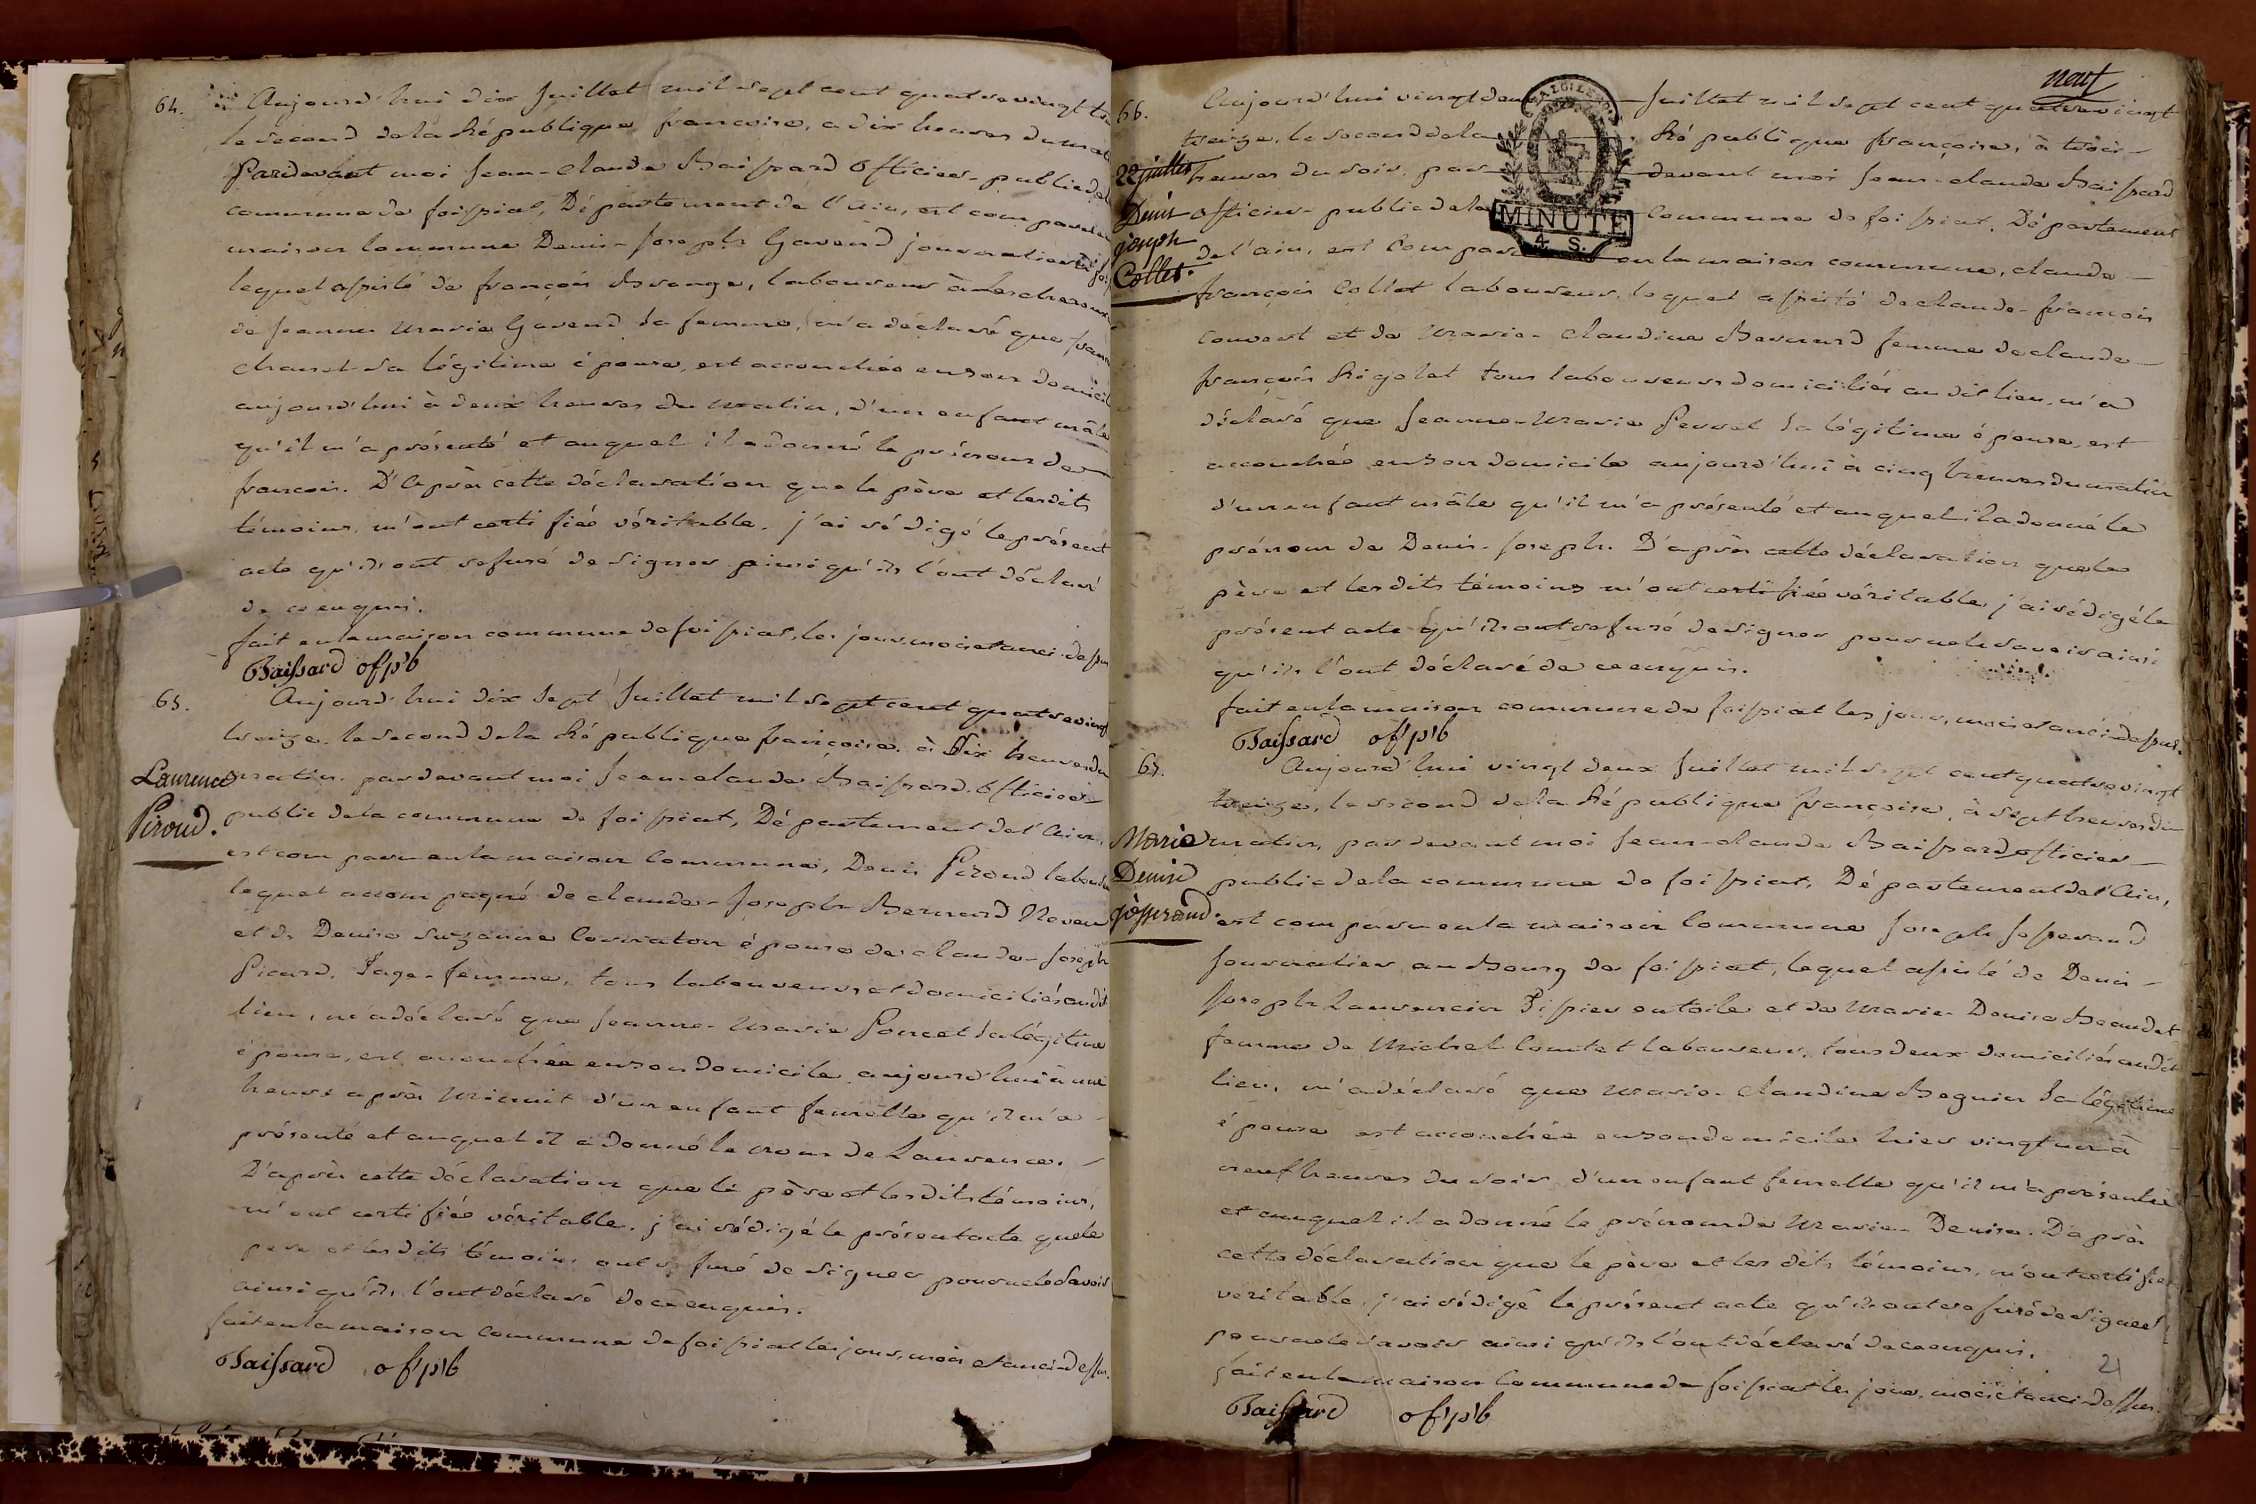 64.
Aujourd'hui dix Juillet mil sept cent quatrevingt tr
le second de la République françoise, a dix heures du mat
Pardevant moi Jean-claude Baissard Officier-public de l
commune de foissiat, Département de l'Ain, est comparu en
maison Commune Denis-Joseph Gavend journalier
lequel assisté de françois Buvenge, laboureur
de Jeanne Marie Gavend sa femme, m'a déclaré que
sa légitime épouse, est accouchée en son domicil
aujourd'hui à deux heures du matin, d'un enfant mâle
qu'il m'a présenté et auquel il a donné le prénom de
françois. D'après cette déclaration que le père et lesdits
témoins, m'ont certifiée véritable. j'ai rédigé le présent
acte qu'ils ont refusé de signer ainsi qu'ils l'ont déclaré
de ce enquis.
fait en la maison commune de foissiat, les jour, mois et an ci-dessus
Baissard of p'b
65.
Aujourd'hui dix sept Juillet mil sept cent quatrevingt
treize. le second de la République françoise. à dix heures du
Laurence
Piroud.
matin. pardevant moi Jean claude Baissard. Officier
public de la commune de foissiat, Département de l'Ain,
est comparu en la maison Commune, Denis Piroud labou
lequel accompagné de claude-Joseph Bernard Neveu
et de Denise Suzanne Cornaton épouse de claude-Joseph
Picard, Sage-femme, tous laboureurs et domiciliés audit
lieu, m'a déclaré que Jeanne-Marie Poncet sa légitime
épouse, est accouchée en son domicile aujourd'hui à une
heure après Minuit d'un enfant femelle qu'il m'a
présenté et auquel il a donné le nom de Laurence.
D'après cette déclaration que le père et lesdits témoins,
m'ont certifiée véritable. j'ai rédigé le présent acte que le
pere et lesdits témoins ont refusé de signer pour ne le savoir
ainsi qu'ils l'ont déclaré de ce enquis.
fait en la maison commune de foissiat les jour, mois et an ci-dessus.
Baissard of p'b
neuf
66.
22 juillet
Denis
joseph
Collet.
MINUTE
4 S.
Aujourd'hui vingt deux Juillet mil sept cent quatrevingt
treize, le second de la République françoise, à trois
heures du soir, pardevant moi Jean-claude Baissard
officier-public de la Commune de foissiat, Département
de l'ain, est comparu en la maison commune, claude
françois Collet laboureur, lequel assisté de claude-françois
Convert et de Marie-Claudine Bernard femme de claude
françois Rigolet tous laboureurs domiciliés audit lieu, m'a
déclaré que Jeanne-Marie Perret sa légitime épouse, est
accouchée en son domicile aujourd'hui à cinq heures du matin
d'un enfant mâle qu'il m'a présenté et auquel il a donné le
prénom de Denis-Joseph. D'après cette déclaration que le
père et lesdits témoins m'ont certifiée véritable, j'ai rédigé le
présent acte qu'ils ont refusé de signer pour ne le savoir ainsi
qu'ils l'ont déclaré de ce enquis.
fait en la maison commune de foissiat les jour, mois et an ci-dessus.
Baissard of p'b
67.
Aujourd'hui vingt deux Juillet mil sept cent quatrevingt
treize, le second de la République françoise, à sept heures du
Marie
Denise
Jossserand.
matin, pardevant moi Jean-claude Baissard officier
public de la commune de foissiat, Département de l'Ain,
est comparu en la maison Commune Joseph Josserand
Journalier au Bourg de foissiat, lequel assisté de Denis-
Joseph Laurencin Tissier en toile et de Marie-Denise Beaudet
femme de Michel Comtet laboureur, tous deux domiciliés audit
lieu, m'a déclaré que Marie-Claudine Beguin sa légitime
épouse est accouchée en son domicile hier vingt un à
neuf heures du soir d'un enfant femelle qu'il m'a présentée
et auquel il a donné le prénom de Marie-Denise. D'après
cette déclaration que le père et lesdits témoins, m'ont certifiée
veritable, j'ai rédigé le présent acte qu'ils ont refusé de signer
pour ne le savoir ainsi qu'ils l'ont déclaré de ce enquis.
fait en la maison Commune de foissiat les jour, mois et an ci-dessus.
Baissard of p'b
21